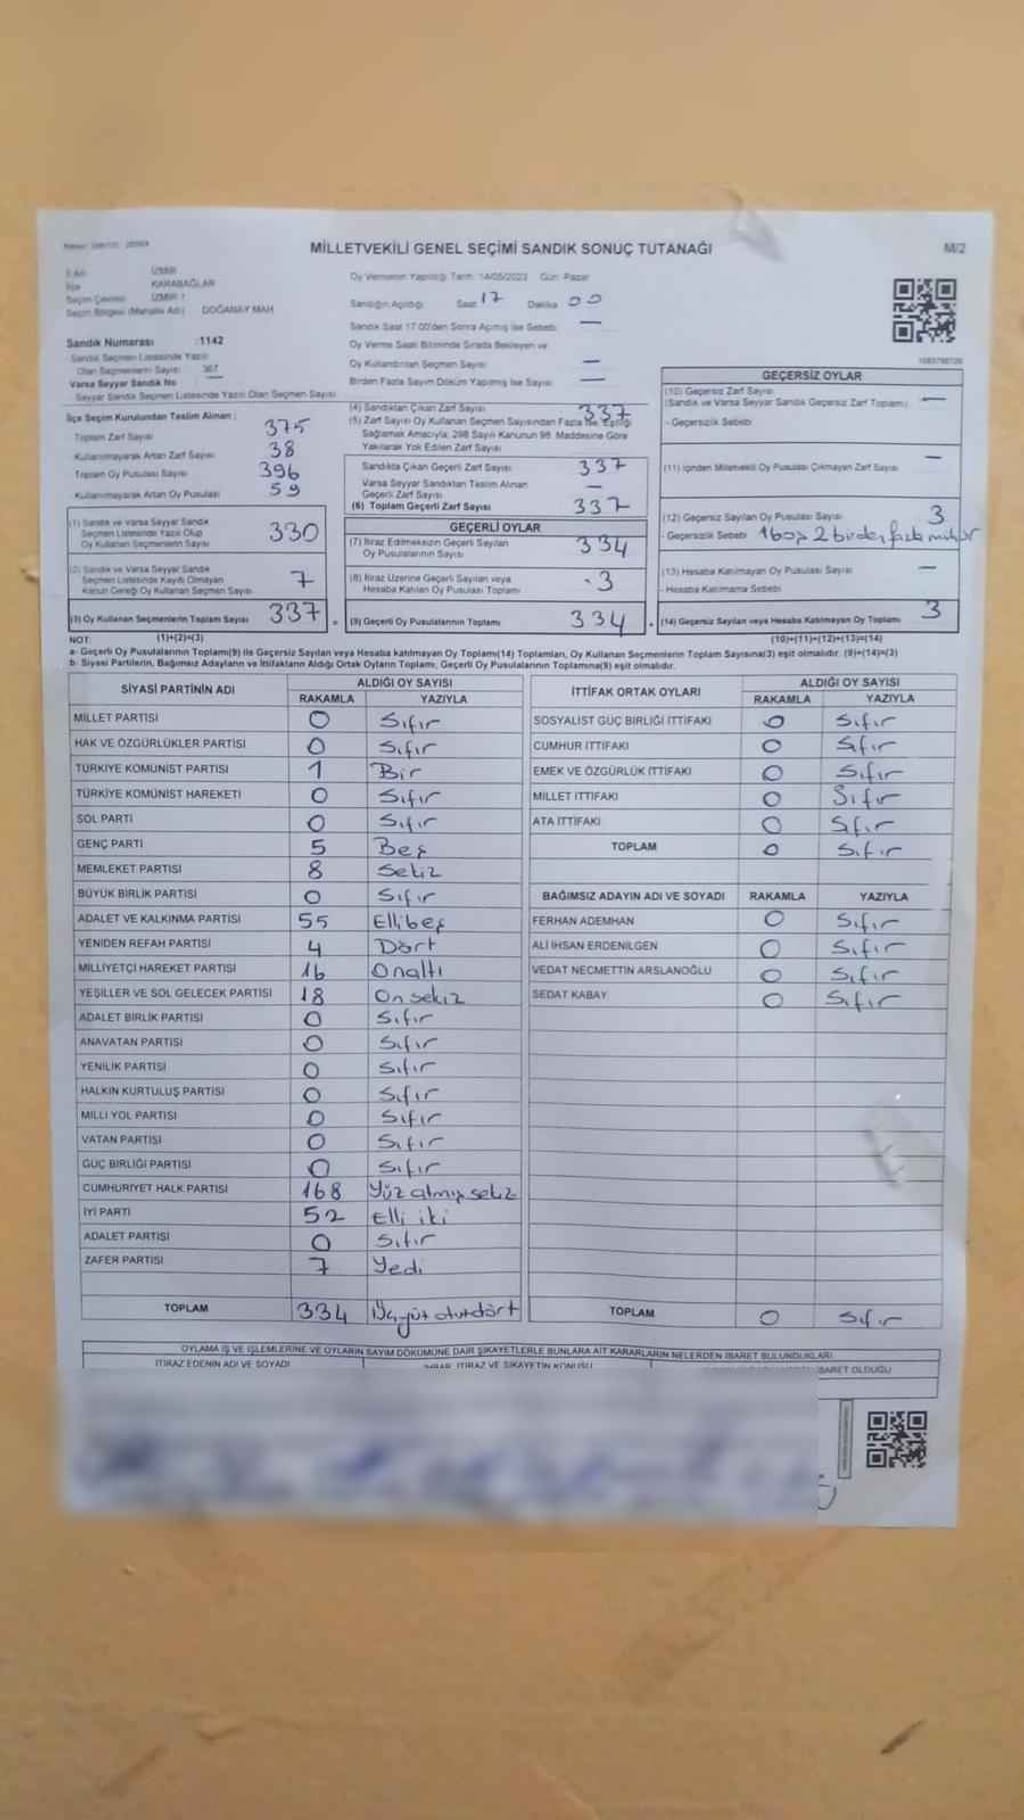 MİLLETVEKİLİ GENEL SEÇİMİ SANDIK SONUÇ TUTANAĞI
M/2
İZMİR
KARABAĞLAR
İZMİR 1
DOĞANAY MAH
Oy Vermenin Yapıldığı Tarih: 14/05/2023 Gün: Pazar
Sandığın Açıldığı Saat 17 Dakika 00
Sandık Saat 17.00'den Sonra Açılmış İse Sebebi —
Sandık Numarası :1142
Oy Verme Saati Bitiminde Sırada Bekleyen ve
Oy Kullandırılan Seçmen Sayısı —
Birden Fazla Sayım Döküm Yapılmış İse Sayısı —
Sandık Seçmen Listesinde Yazılı
Olan Seçmenlerin Sayısı 367
Varsa Seyyar Sandık No —
Seyyar Sandık Seçmen Listesinde Yazılı Olan Seçmen Sayısı
İlçe Seçim Kurulundan Teslim Alınan :
Toplam Zarf Sayısı 375
Kullanılmayarak Artan Zarf Sayısı 38
Toplam Oy Pusulası Sayısı 396
Kullanılmayarak Artan Oy Pusulası 59
(1) Sandık ve Varsa Seyyar Sandık
Seçmen Listesinde Yazılı Olup
Oy Kullanan Seçmenlerin Sayısı 330
(2) Sandık ve Varsa Seyyar Sandık
Seçmen Listesinde Kaydı Olmayan
Kanun Gereği Oy Kullanan Seçmen Sayısı 7
(3) Oy Kullanan Seçmenlerin Toplam Sayısı 337
(4) Sandıktan Çıkan Zarf Sayısı 337
(5) Zarf Sayısı Oy Kullanan Seçmen Sayısından Fazla İse, Eşitliği
Sağlamak Amacıyla; 298 Sayılı Kanunun 98. Maddesine Göre
Yakılarak Yok Edilen Zarf Sayısı
Sandıkta Çıkan Geçerli Zarf Sayısı 337
Varsa Seyyar Sandıktan Teslim Alınan
Geçerli Zarf Sayısı —
(6) Toplam Geçerli Zarf Sayısı 337
GEÇERLİ OYLAR
(7) İtiraz Edilmeksizin Geçerli Sayılan
Oy Pusulalarının Sayısı 334
(8) İtiraz Üzerine Geçerli Sayılan veya
Hesaba Katılan Oy Pusulası Toplamı 3
(9) Geçerli Oy Pusulalarının Toplamı 334
GEÇERSİZ OYLAR
(10) Geçersiz Zarf Sayısı
(Sandık ve Varsa Seyyar Sandık Geçersiz Zarf Toplamı) —
- Geçersizlik Sebebi
(11) İçinden Milletvekili Oy Pusulası Çıkmayan Zarf Sayısı —
(12) Geçersiz Sayılan Oy Pusulası Sayısı 3
- Geçersizlik Sebebi 1 boş 2 birden fazla mühür
(13) Hesaba Katılmayan Oy Pusulası Sayısı —
- Hesaba Katılmama Sebebi
(14) Geçersiz Sayılan veya Hesaba Katılmayan Oy Toplamı 3
NOT: (1)+(2)=(3)
(10)+(11)+(12)+(13)=(14)
a- Geçerli Oy Pusulalarının Toplamı(9) ile Geçersiz Sayılan veya Hesaba katılmayan Oy Toplamı(14) Toplamları, Oy Kullanan Seçmenlerin Toplam Sayısına(3) eşit olmalıdır. (9)+(14)=(3)
b- Siyasi Partilerin, Bağımsız Adayların ve İttifakların Aldığı Ortak Oyların Toplamı, Geçerli Oy Pusulalarının Toplamına(9) eşit olmalıdır.
SİYASİ PARTİNİN ADI
ALDIĞI OY SAYISI
RAKAMLA YAZIYLA
MİLLET PARTİSİ 0 Sıfır
HAK VE ÖZGÜRLÜKLER PARTİSİ 0 Sıfır
TÜRKİYE KOMÜNİST PARTİSİ 1 Bir
TÜRKİYE KOMÜNİST HAREKETİ 0 Sıfır
SOL PARTİ 0 Sıfır
GENÇ PARTİ 5 Beş
MEMLEKET PARTİSİ 8 Sekiz
BÜYÜK BİRLİK PARTİSİ 0 Sıfır
ADALET VE KALKINMA PARTİSİ 55 Ellibeş
YENİDEN REFAH PARTİSİ 4 Dört
MİLLİYETÇİ HAREKET PARTİSİ 16 Onaltı
YEŞİLLER VE SOL GELECEK PARTİSİ 18 On sekiz
ADALET BİRLİK PARTİSİ 0 Sıfır
ANAVATAN PARTİSİ 0 Sıfır
YENİLİK PARTİSİ 0 Sıfır
HALKIN KURTULUŞ PARTİSİ 0 Sıfır
MİLLİ YOL PARTİSİ 0 Sıfır
VATAN PARTİSİ 0 Sıfır
GÜÇ BİRLİĞİ PARTİSİ 0 Sıfır
CUMHURİYET HALK PARTİSİ 168 Yüz atmış sekiz
İYİ PARTİ 52 Elli iki
ADALET PARTİSİ 0 Sıfır
ZAFER PARTİSİ 7 Yedi
TOPLAM 334 Üçyüz otuzdört
İTTİFAK ORTAK OYLARI
ALDIĞI OY SAYISI
RAKAMLA YAZIYLA
SOSYALİST GÜÇ BİRLİĞİ İTTİFAKI 0 Sıfır
CUMHUR İTTİFAKI 0 Sıfır
EMEK VE ÖZGÜRLÜK İTTİFAKI 0 Sıfır
MİLLET İTTİFAKI 0 Sıfır
ATA İTTİFAKI 0 Sıfır
TOPLAM 0 Sıfır
BAĞIMSIZ ADAYIN ADI VE SOYADI RAKAMLA YAZIYLA
FERHAN ADEMHAN 0 Sıfır
ALİ İHSAN ERDENİLGEN 0 Sıfır
VEDAT NECMETTİN ARSLANOĞLU 0 Sıfır
SEDAT KABAY 0 Sıfır
TOPLAM 0 Sıfır
OYLAMA İŞ VE İŞLEMLERİNE VE OYLARIN SAYIM DÖKÜMÜNE DAİR ŞİKAYETLERLE BUNLARA AİT KARARLARIN NELERDEN İBARET BULUNDUKLARI
İTİRAZ EDENİN ADI VE SOYADI
İTİRAZ VE ŞİKAYETİN KONUSU
İBARET OLDUĞU